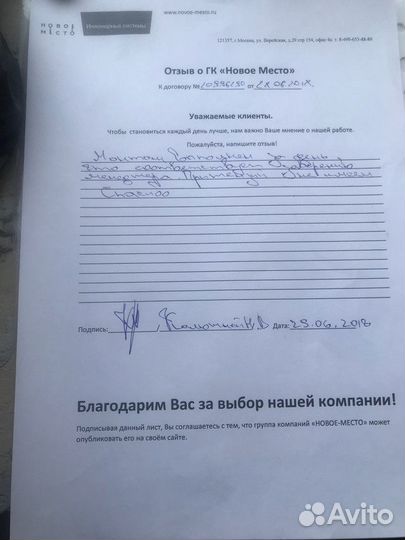 www.novoe-mesto.ru
НОВОЕ
МЕСТО
Инженерные системы
121357, г. Москва, ул. Верейская, д.29 стр 154, офис 4а т. 8-499-653-88-89
Отзыв о ГК «Новое Место»
К договору № от
Уважаемые клиенты.
Чтобы становиться каждый день лучше, нам важно Ваше мнение о нашей работе.
Пожалуйста, напишите отзыв!
Монтаж выполнен за день
что соответствует заверению
менеджера. Претензий не имеем
Спасибо
Подпись: Дата: 29.06.2018
Благодарим Вас за выбор нашей компании!
Подписывая данный лист, Вы соглашаетесь с тем, что группа компаний «НОВОЕ-МЕСТО» может
опубликовать его на своём сайте.
Avito